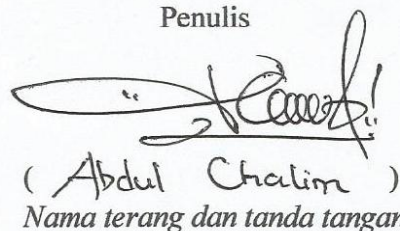 Penulis
( Abdul Chalim )
Nama terang dan tanda tangan